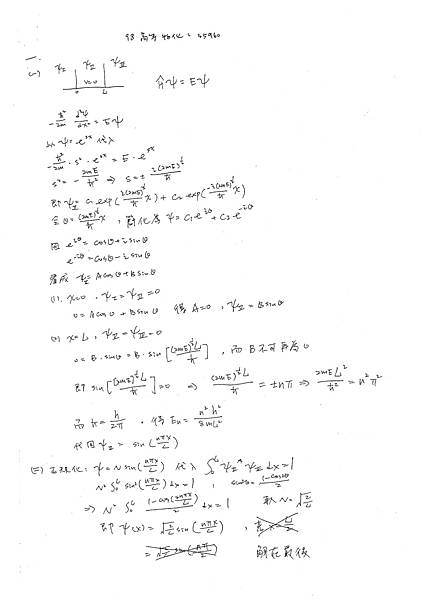 93 高考 物化 : 45960
一.
(一) ψI ψII ψIII
V=0
0 L
Ĥψ = Eψ
-ħ²/2m d²ψ/dx² = Eψ
以 ψ=e^{sx} 代入
-ħ²/2m · s² · e^{sx} = E · e^{sx}
s² = -2mE/ħ² ⇒ s = ± i(2mE)^{½}/ħ
即 ψII = c₁ exp(i(2mE)^{½}/ħ x) + c₂ exp(-i(2mE)^{½}/ħ x)
令 θ = (2mE)^{½}/ħ x , 簡化為 ψ = c₁e^{iθ} + c₂e^{-iθ}
因 e^{iθ} = cosθ + i sinθ
e^{-iθ} = cosθ - i sinθ
寫成 ψII = A cosθ + B sinθ
(1) x=0 , ψI = ψII = 0
0 = A cos 0 + B sin 0 得 A=0 , ψII = B sinθ
(2) x=L , ψII = ψIII = 0
0 = B · sinθ = B · sin [(2mE)^{½}L/ħ] , 而 B 不可再為 0
即 sin [(2mE)^{½}L/ħ] = 0 ⇒ (2mE)^{½}L/ħ = ±nπ ⇒ 2mEL²/ħ² = n²π²
而 ħ = h/2π , 得 En = n²h²/8mL²
代回 ψII = sin (nπx/L)
(二) 正規化 : ψ = N sin(nπx/L) 代入 ∫₀ᴸ ψII* ψII dx = 1
N² ∫₀ᴸ sin²(nπx/L) dx = 1 ,
⇒ N² ∫₀ᴸ 1-cos(2nπx/L)/2 dx = 1 取 N = √(2/L)
即 ψ(x) = √(2/L) sin (nπx/L) ,
解在最後